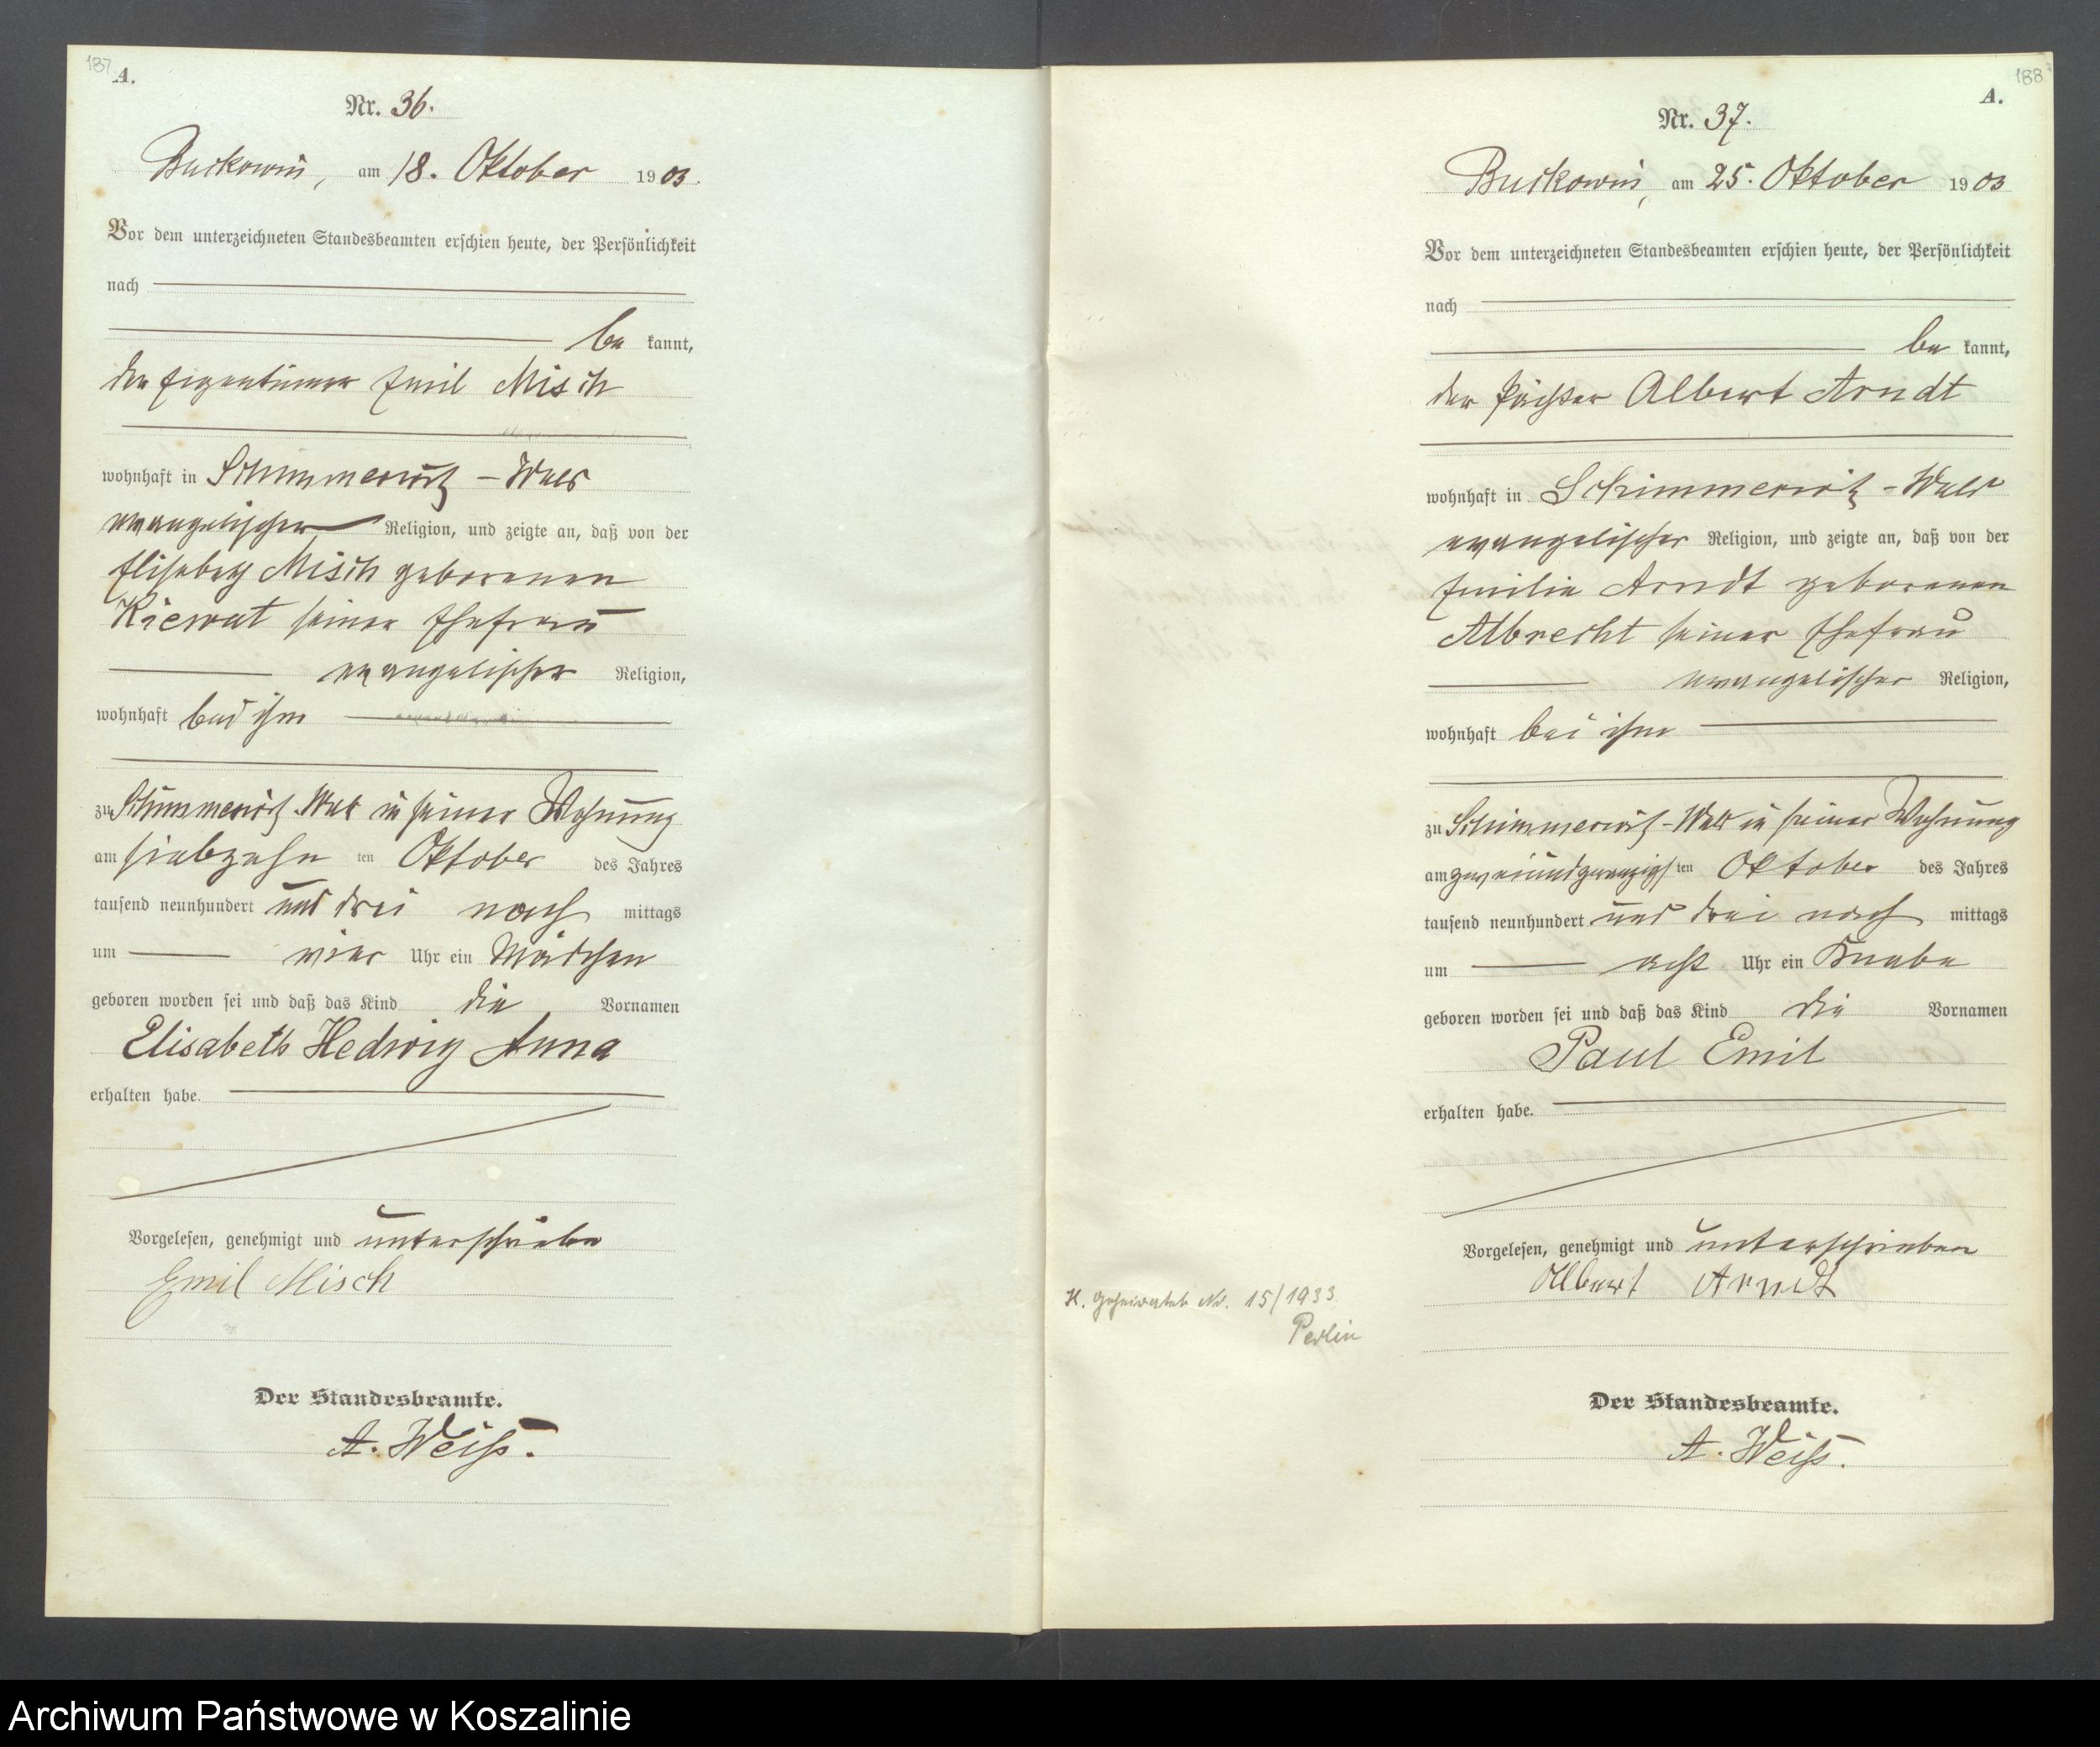 187
A.
Nr. 36.
Buckowin, am 18. Oktober 1903.
Vor dem unterzeichneten Standesbeamten erschien heute, der Persönlichkeit
nach
be kannt,
der Eigentümer Emil Misch
wohnhaft in Schimmerwitz - Wald
evangelischer Religion, und zeigte an, daß von der
Elisabeth Misch geborenen
Kiewat seiner Ehefrau
evangelischer Religion,
wohnhaft bei ihm
zu Schimmerwitz-Wald in seiner Wohnung
am siebzehn ten Oktober des Jahres
tausend neunhundert und drei nach mittags
um vier Uhr ein Mädchen
geboren worden sei und daß das Kind die Vornamen
Elisabeth Hedwig Anna
erhalten habe.
Vorgelesen, genehmigt und unterschrieben
Emil Misch
Der Standesbeamte.
A. Weiß.
188
A.
Nr. 37.
Buckowin, am 25. Oktober 1903
Vor dem unterzeichneten Standesbeamten erschien heute, der Persönlichkeit
nach
be kannt,
der Pächter Albert Arndt
wohnhaft in Schimmerwitz - Wald
evangelischer Religion, und zeigte an, daß von der
Emilie Arndt geborenen
Albrecht seiner Ehefrau
evangelischer Religion,
wohnhaft bei ihm
zu Schimmerwitz-Wald in seiner Wohnung
am zweiundzwanzigsten Oktober des Jahres
tausend neunhundert und drei nach mittags
um acht Uhr ein Knabe
geboren worden sei und daß das Kind die Vornamen
Paul Emil
erhalten habe.
Vorgelesen, genehmigt und unterschrieben
Albert Arndt
K. geheiratet Nr. 15/1933
Perlin
Der Standesbeamte.
A. Weiß.
Archiwum Państwowe w Koszalinie